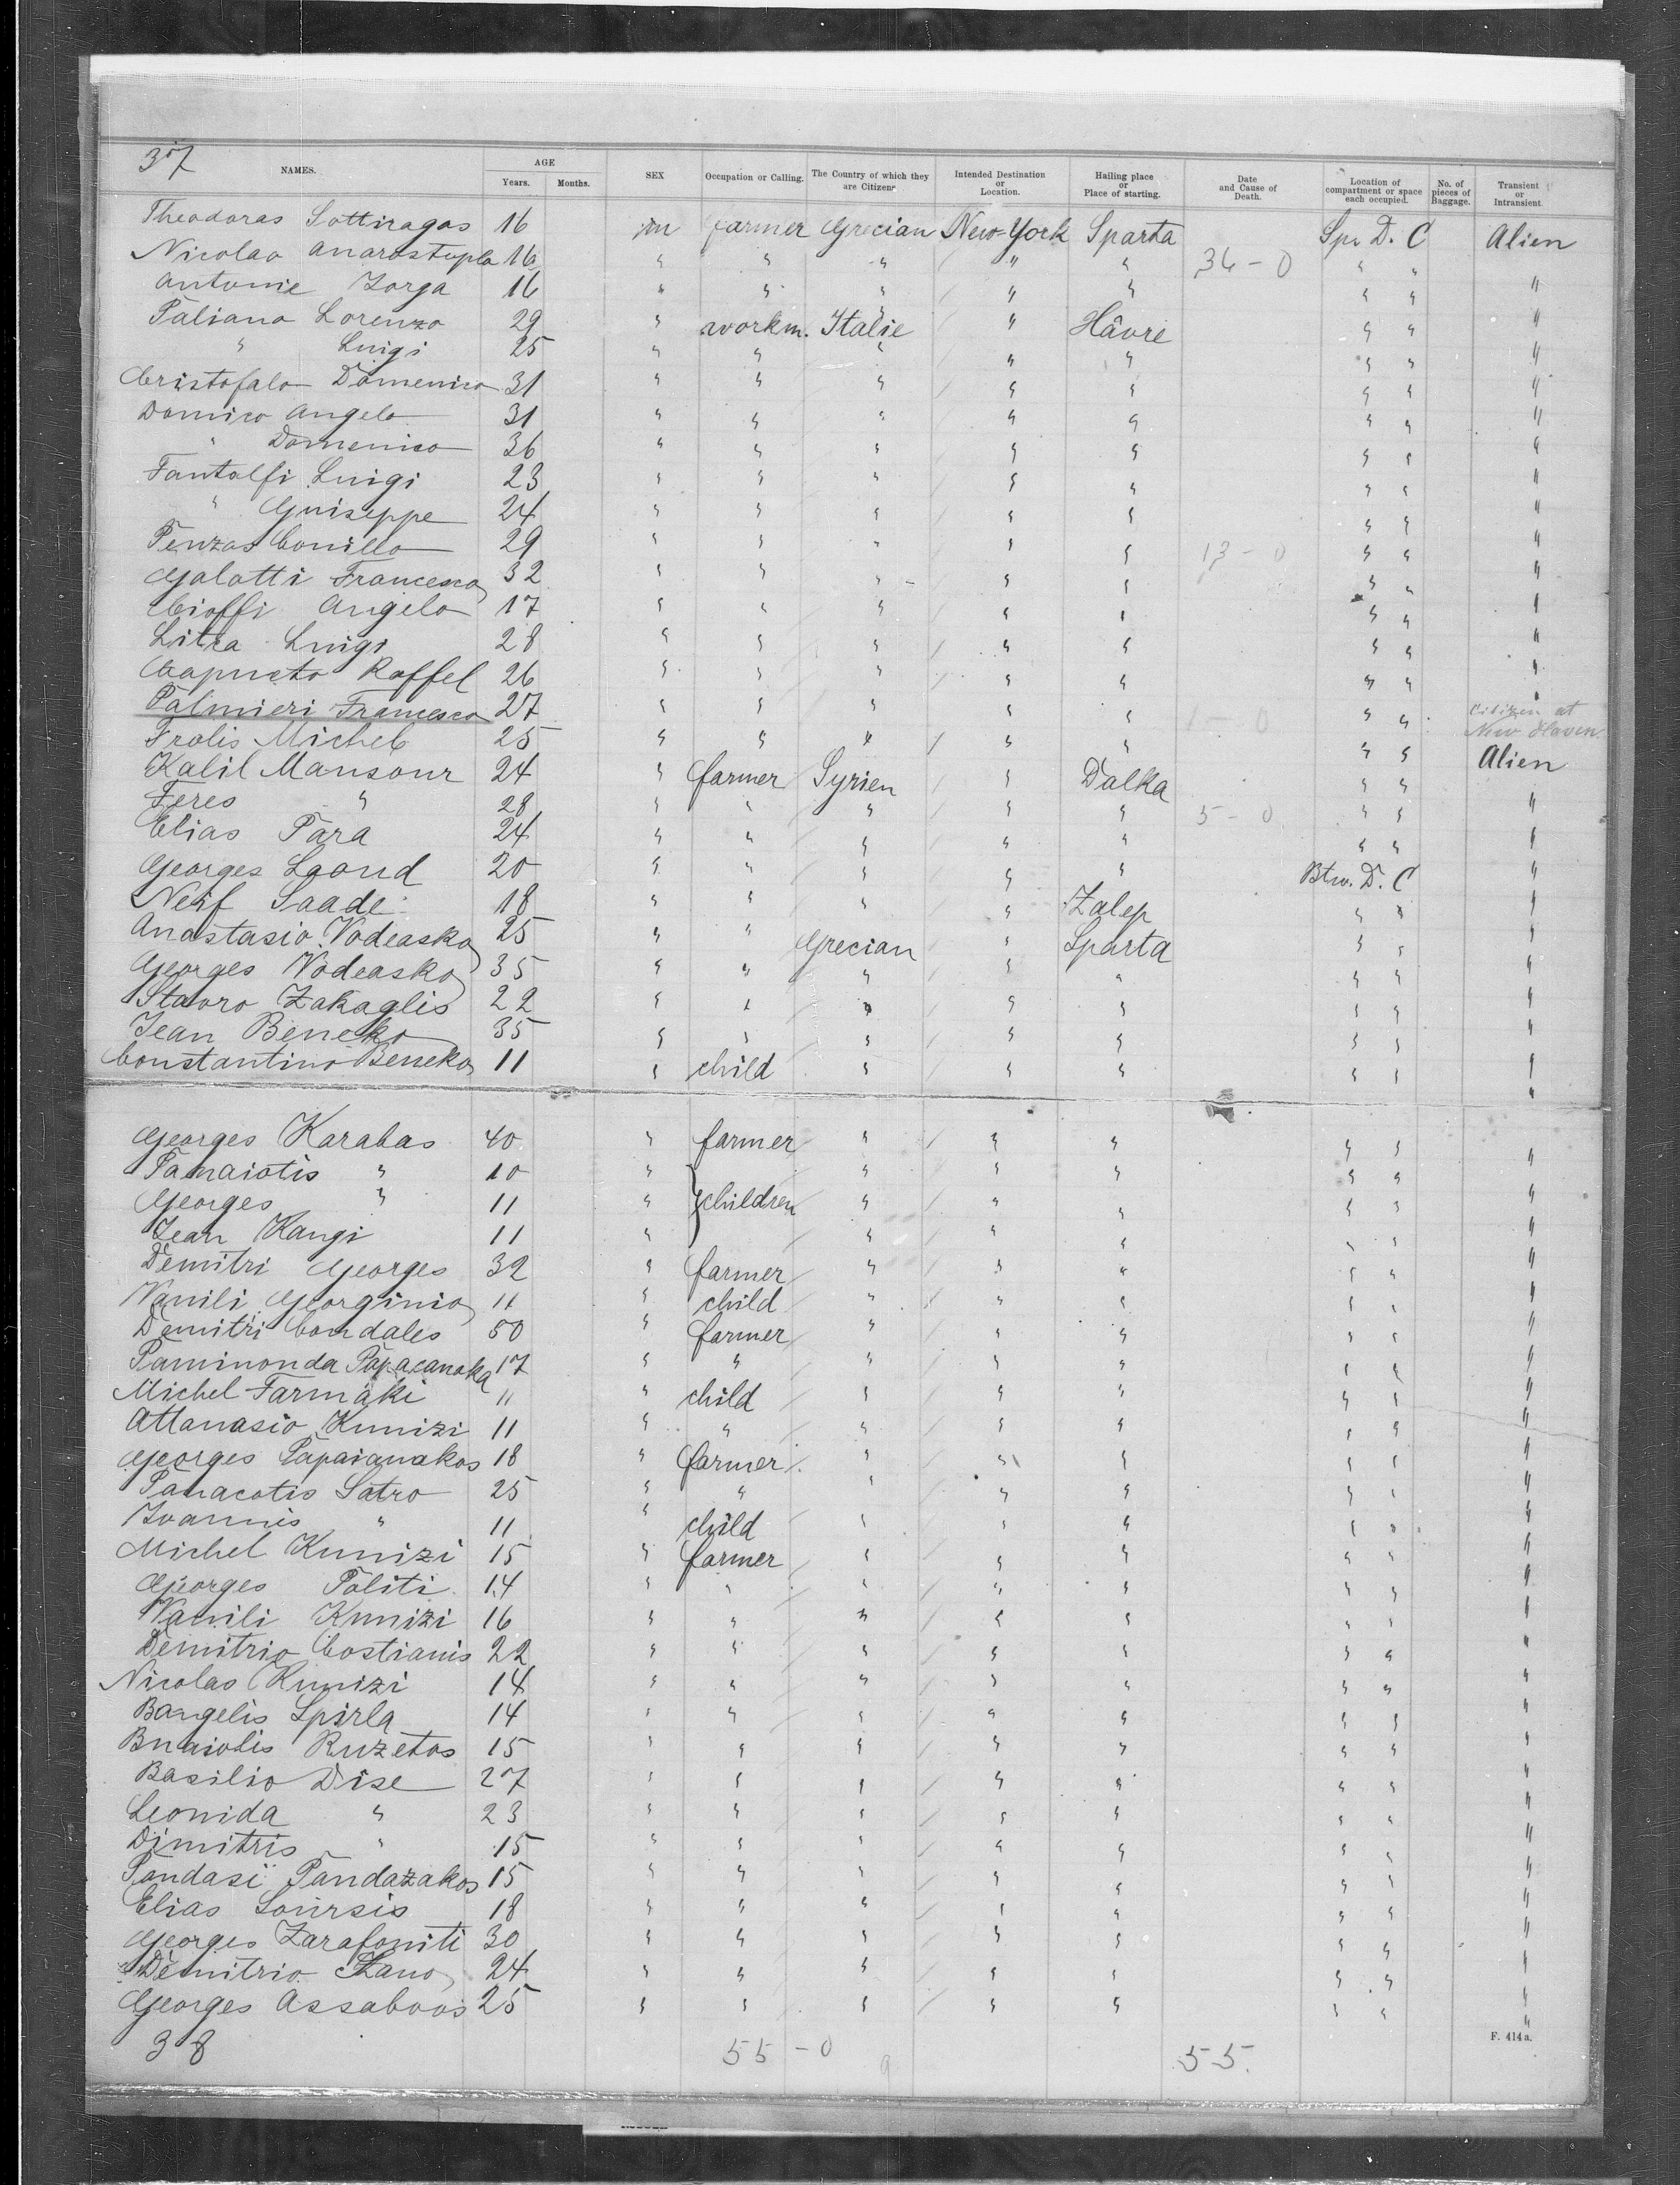 37
NAMES. AGE Years. Months. SEX Occupation or Calling. The Country of which they are Citizens Intended Destination or Location. Hailing place or Place of starting. Date and Cause of Death. Location of compartment or space each occupied. No. of pieces of Baggage. Transient or Intransient.
Theodoras Sottiragas 16 m farmer Grecian New-York Sparta Spr D. C Alien
Nicolao Anarostopla 16 " " " " " 36-0 " " "
Antonie Zorga 16 " " " " " " " "
Paliano Lorenzo 29 " workm. Italie " Hâvre " " "
" Luigi 25 " " " " " " " "
Cristofalo Domenico 31 " " " " " " " "
Domico Angelo 31 " " " " " " " "
" Domenico 36 " " " " " " " "
Fantolfi Luigi 23 " " " " " " " "
" Guiseppe 24 " " " " " " " "
Penzas Conillo 29 " " " " " 13-0 " " "
Galotti Francesco 32 " " " " " " " "
Cioffi Angelo 17 " " " " " " " "
Litra Luigi 28 " " " " " " " "
Capucto Raffel 26 " " " " " " " "
Palmieri Francesco 27 " " " " " 1-0 " " Citizen at New Haven
Frolis Michel 25 " " " " " " " Alien
Kalil Mansour 24 " farmer Syrien " Dalka " " "
Feres " 28 " " " " " 5-0 " " "
Elias Tara 24 " " " " " " " "
Georges Laoud 20 " " " " " Btw. D. C "
Neif Saade 18 " " " " Zalep " " "
Anastasio Vodeasko 25 " " Grecian " Sparta " " "
Georges Vodeasko 35 " " " " " " " "
Stavro Zakaglis 22 " " " " " " " "
Jean Beneko 35 " " " " " " " "
Constantino Beneko 11 " child " " " " " "
Georges Karabas 40 " farmer " " " " " "
Panaiotis " 10 " children " " " " " "
Georges " 11 " " " " " " "
Jean Kangi 11 " " " " " " "
Demitri Georges 32 " farmer " " " " " "
Vanili Georginio 11 " child " " " " " "
Demitri Condales 50 " farmer " " " " " "
Paminonda Papacanaka 17 " " " " " " " "
Michel Farmaki 11 " child " " " " " "
Attanasio Kunizi 11 " " " " " " " "
Georges Papaianakos 18 " farmer " " " " " "
Panacotis Satro 25 " " " " " " " "
Joannis " 11 " child " " " " " "
Michel Kunizi 15 " farmer " " " " " "
Georges Politi 14 " " " " " " " "
Vanili Kunizi 16 " " " " " " " "
Demitrio Costianis 22 " " " " " " " "
Nicolas Kunizi 14 " " " " " " " "
Bangelis Spirla 14 " " " " " " " "
Bnaiotis Ruzetos 15 " " " " " " " "
Basilio Dise 27 " " " " " " " "
Leonida " 23 " " " " " " " "
Dimitris " 15 " " " " " " " "
Pandasi Pandazakos 15 " " " " " " " "
Elias Soursis 18 " " " " " " " "
Georges Zarafoniti 30 " " " " " " " "
Demitrio Zano 24 " " " " " " " "
Georges Assaboos 25 " " " " " " " "
F. 414 a.
38 55-0 55.